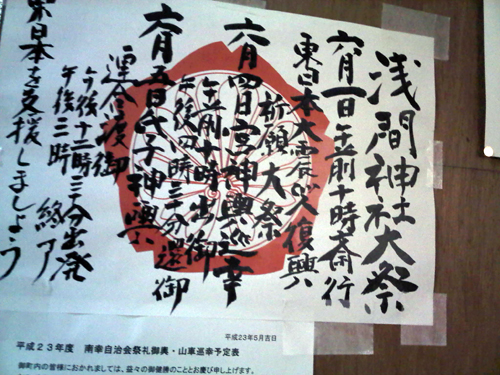 浅間神社大祭
六月一日午前十時斎行
東日本大震災復興
祈願大祭
六月四日宮神輿巡幸
午前十時出御
午後四時三十分還御
六月五日氏子神輿
連合渡御
午後十二時三十分出発
午後三時 終了
東日本を支援しましょう
平成23年5月吉日
平成23年度 南幸自治会祭礼御輿・山車巡幸予定表
御町内の皆様におかれましては、益々の御健勝のこととお慶び申し上げます。